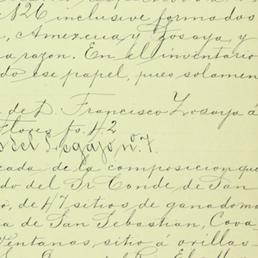 826 inclusive formados
, Amexcua y Zosaya y
a razon. En el inventario
do ese papel, pues solamen
a de D. Francisco Zosaya á
Flores fs. 42
del Legajo nº 7.
cada de la composicion que
do del Sr Conde de San
o, de 47 sitios de ganado ma
a de San Sebastian, Cova
Ventanas, sitio á orillas